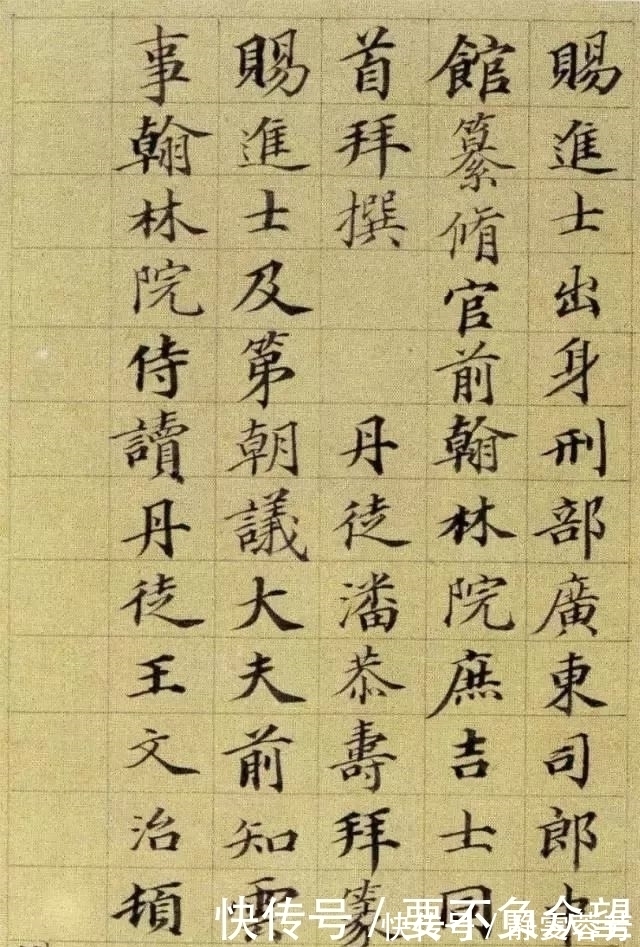 賜進士出身刑部廣東司郎
館纂脩官前翰林院庶吉士同
首拜撰 丹徒潘恭壽拜篆
賜進士及第朝議大夫前知雲
事翰林院侍讀丹徒王文治頓
快传号 / 要不负众望
快传号/